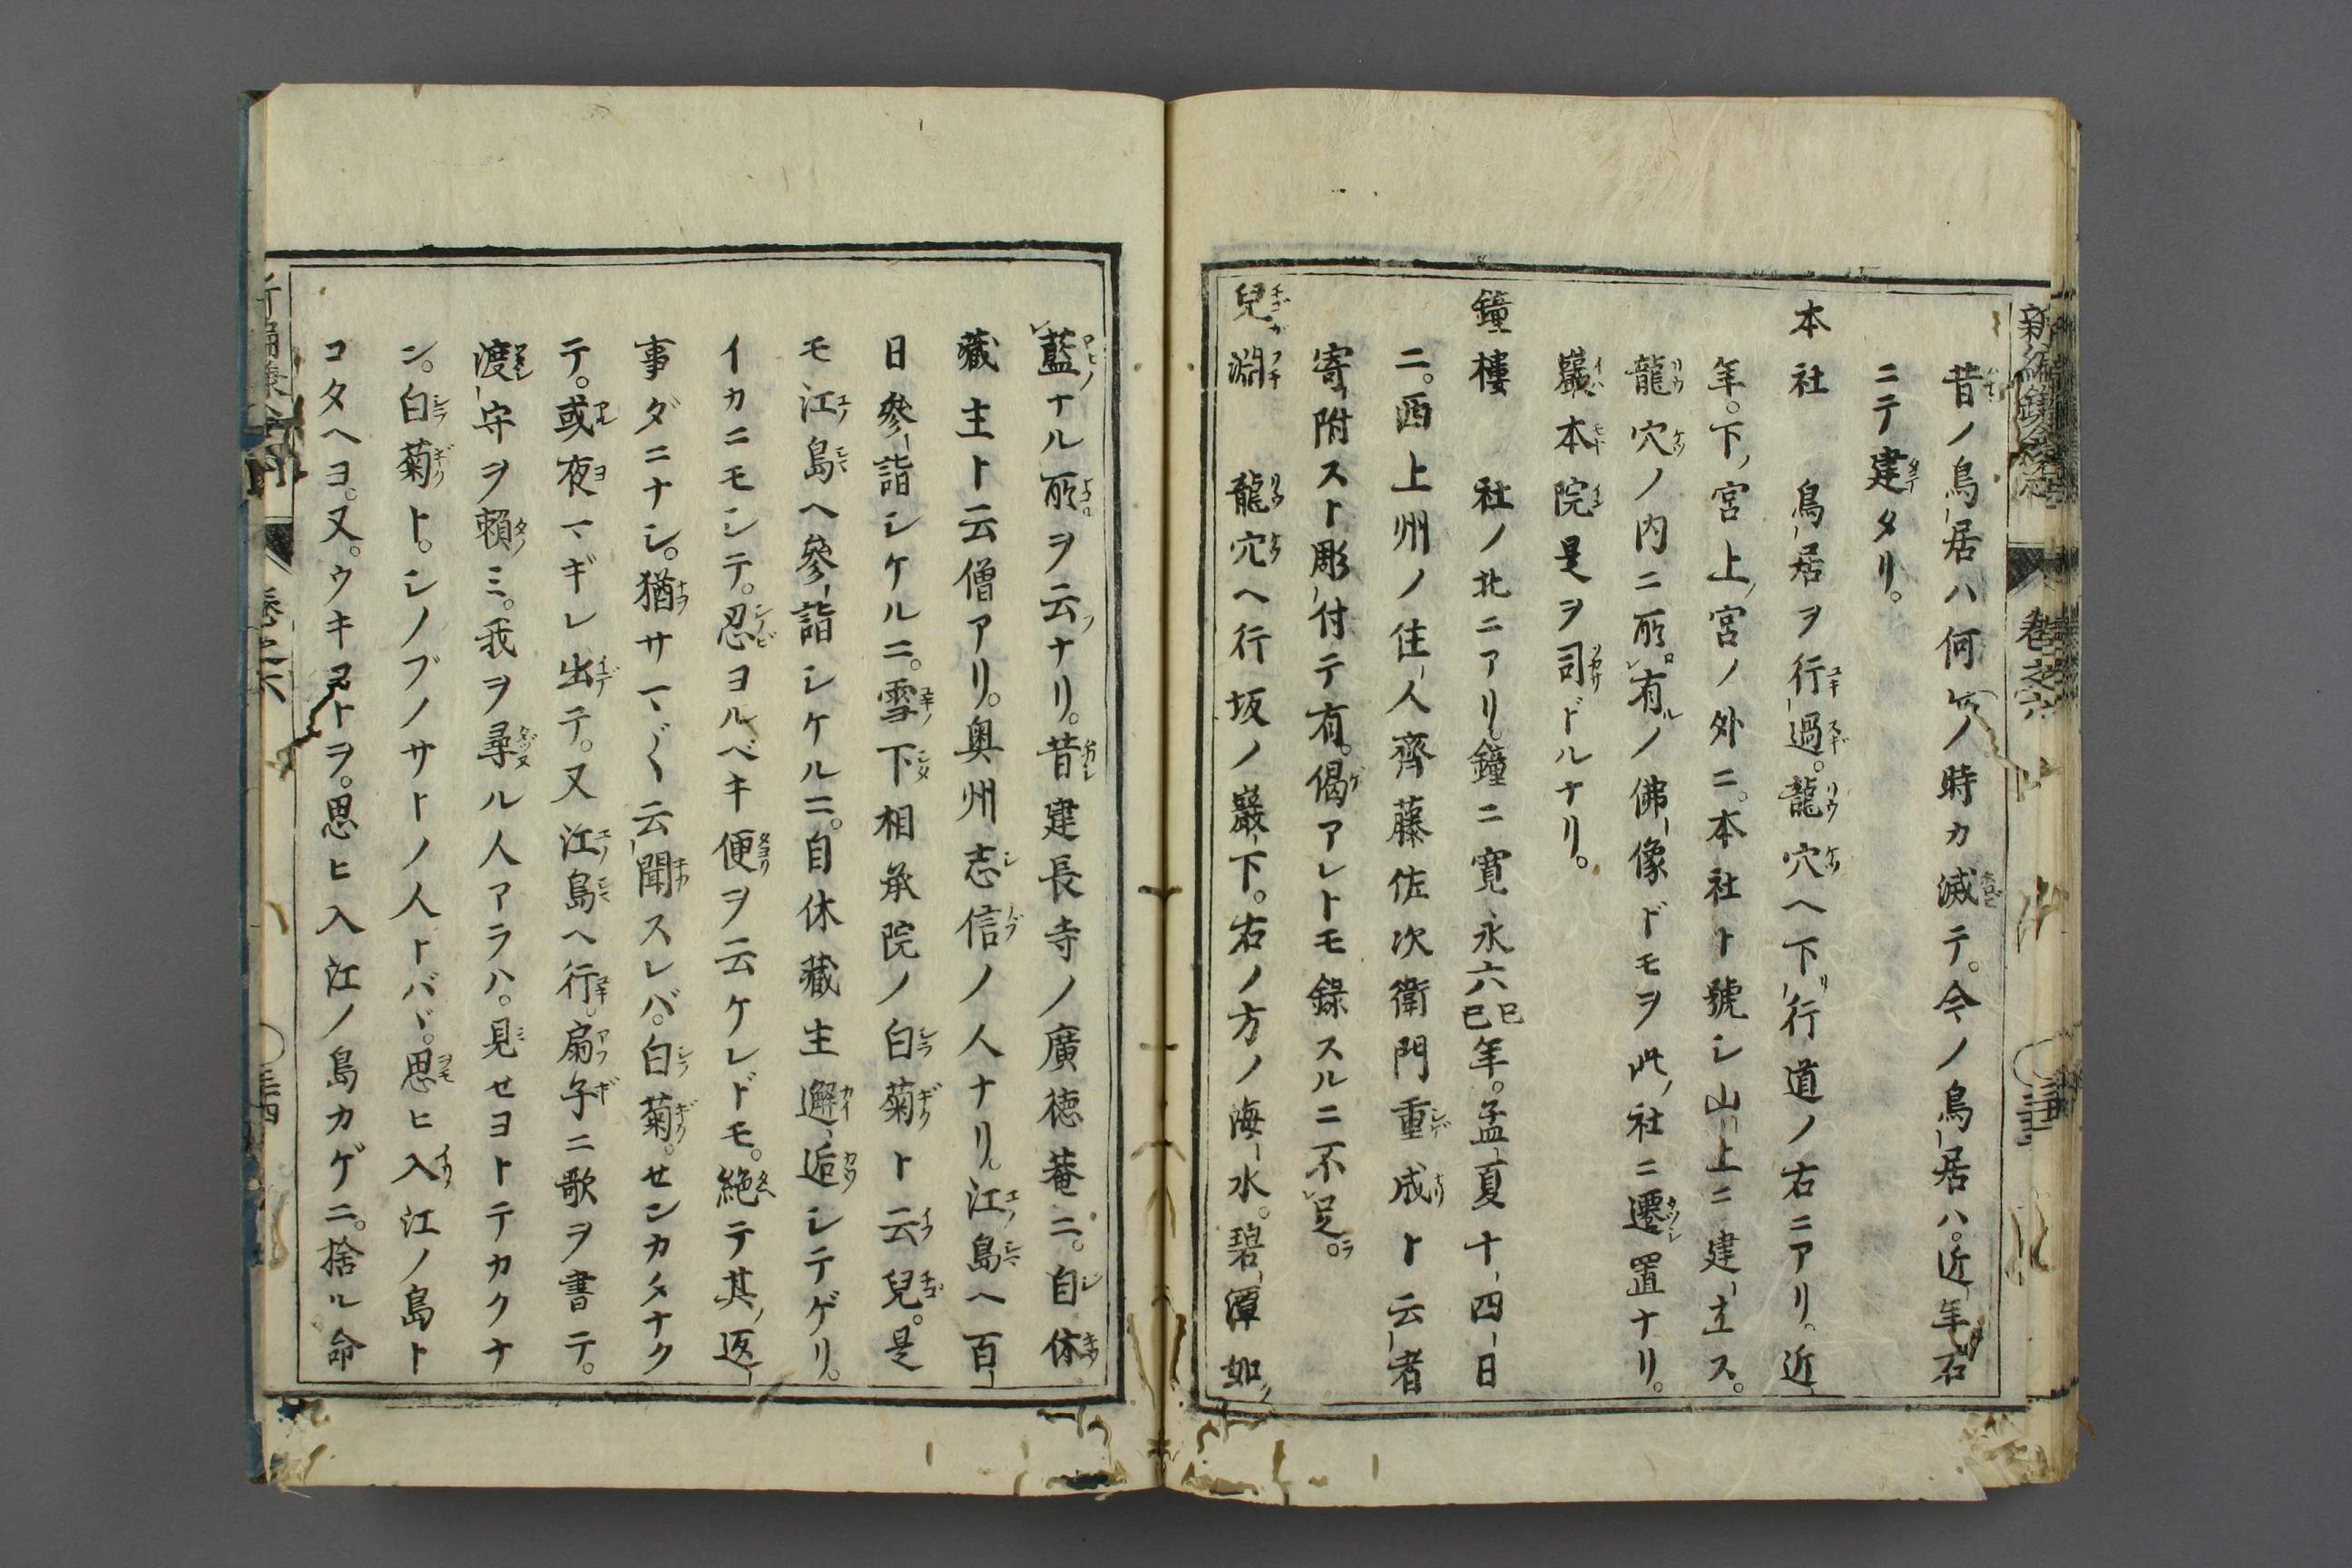 新編鎌倉志 卷之六 三十三
昔ノ鳥居ハ何ノ時カ滅テ。今ノ鳥居ハ。近年石
ニテ建タリ。
本社 鳥居ヲ行過。龍穴ヘ下行道ノ右ニアリ。近
年。下ノ宮上ノ宮ノ外ニ。本社ト號シ山上ニ建立ス。
龍穴ノ内ニ所有ノ佛像ドモヲ此ノ社ニ遷置ナリ。
巖本院是ヲ司ドルナリ。
鐘樓 社ノ北ニアリ。鐘ニ寛永六己巳年。孟夏十四日
ニ。西上州ノ住人齊藤佐次衛門重成ト云者
寄附スト彫付テ有。偈アレトモ錄スルニ不足。
兒淵 龍穴ヘ行坂ノ巖下。右ノ方ノ海水。碧潭如
藍ナル所ヲ云ナリ。昔建長寺ノ廣徳菴ニ。自休
藏主ト云僧アリ。奥州志信ノ人ナリ。江島ヘ百
日參詣シケルニ。雪下相承院ノ白菊ト云兒。是
モ江島ヘ參詣シケルニ。自休藏主邂逅シテゲリ。
イカニモシテ。忍ヨルベキ便ヲ云ケレドモ。絶テ其ノ返
事ダニナシ。猶サマ〲云聞スレバ。白菊。せンカタナク
テ。或夜マギレ出テ。又江島ヘ行。扇子ニ歌ヲ書テ。
渡守ヲ賴ミ。我ヲ尋ル人アラハ。見せヨトテカクナ
ン。白菊ト。シノブノサトノ人トバヾ。思ヒ入江ノ島ト
コタヘヨ。又。ウキヿヲ。思ヒ入江ノ島カゲニ。捨ル命
卷之六 三十四